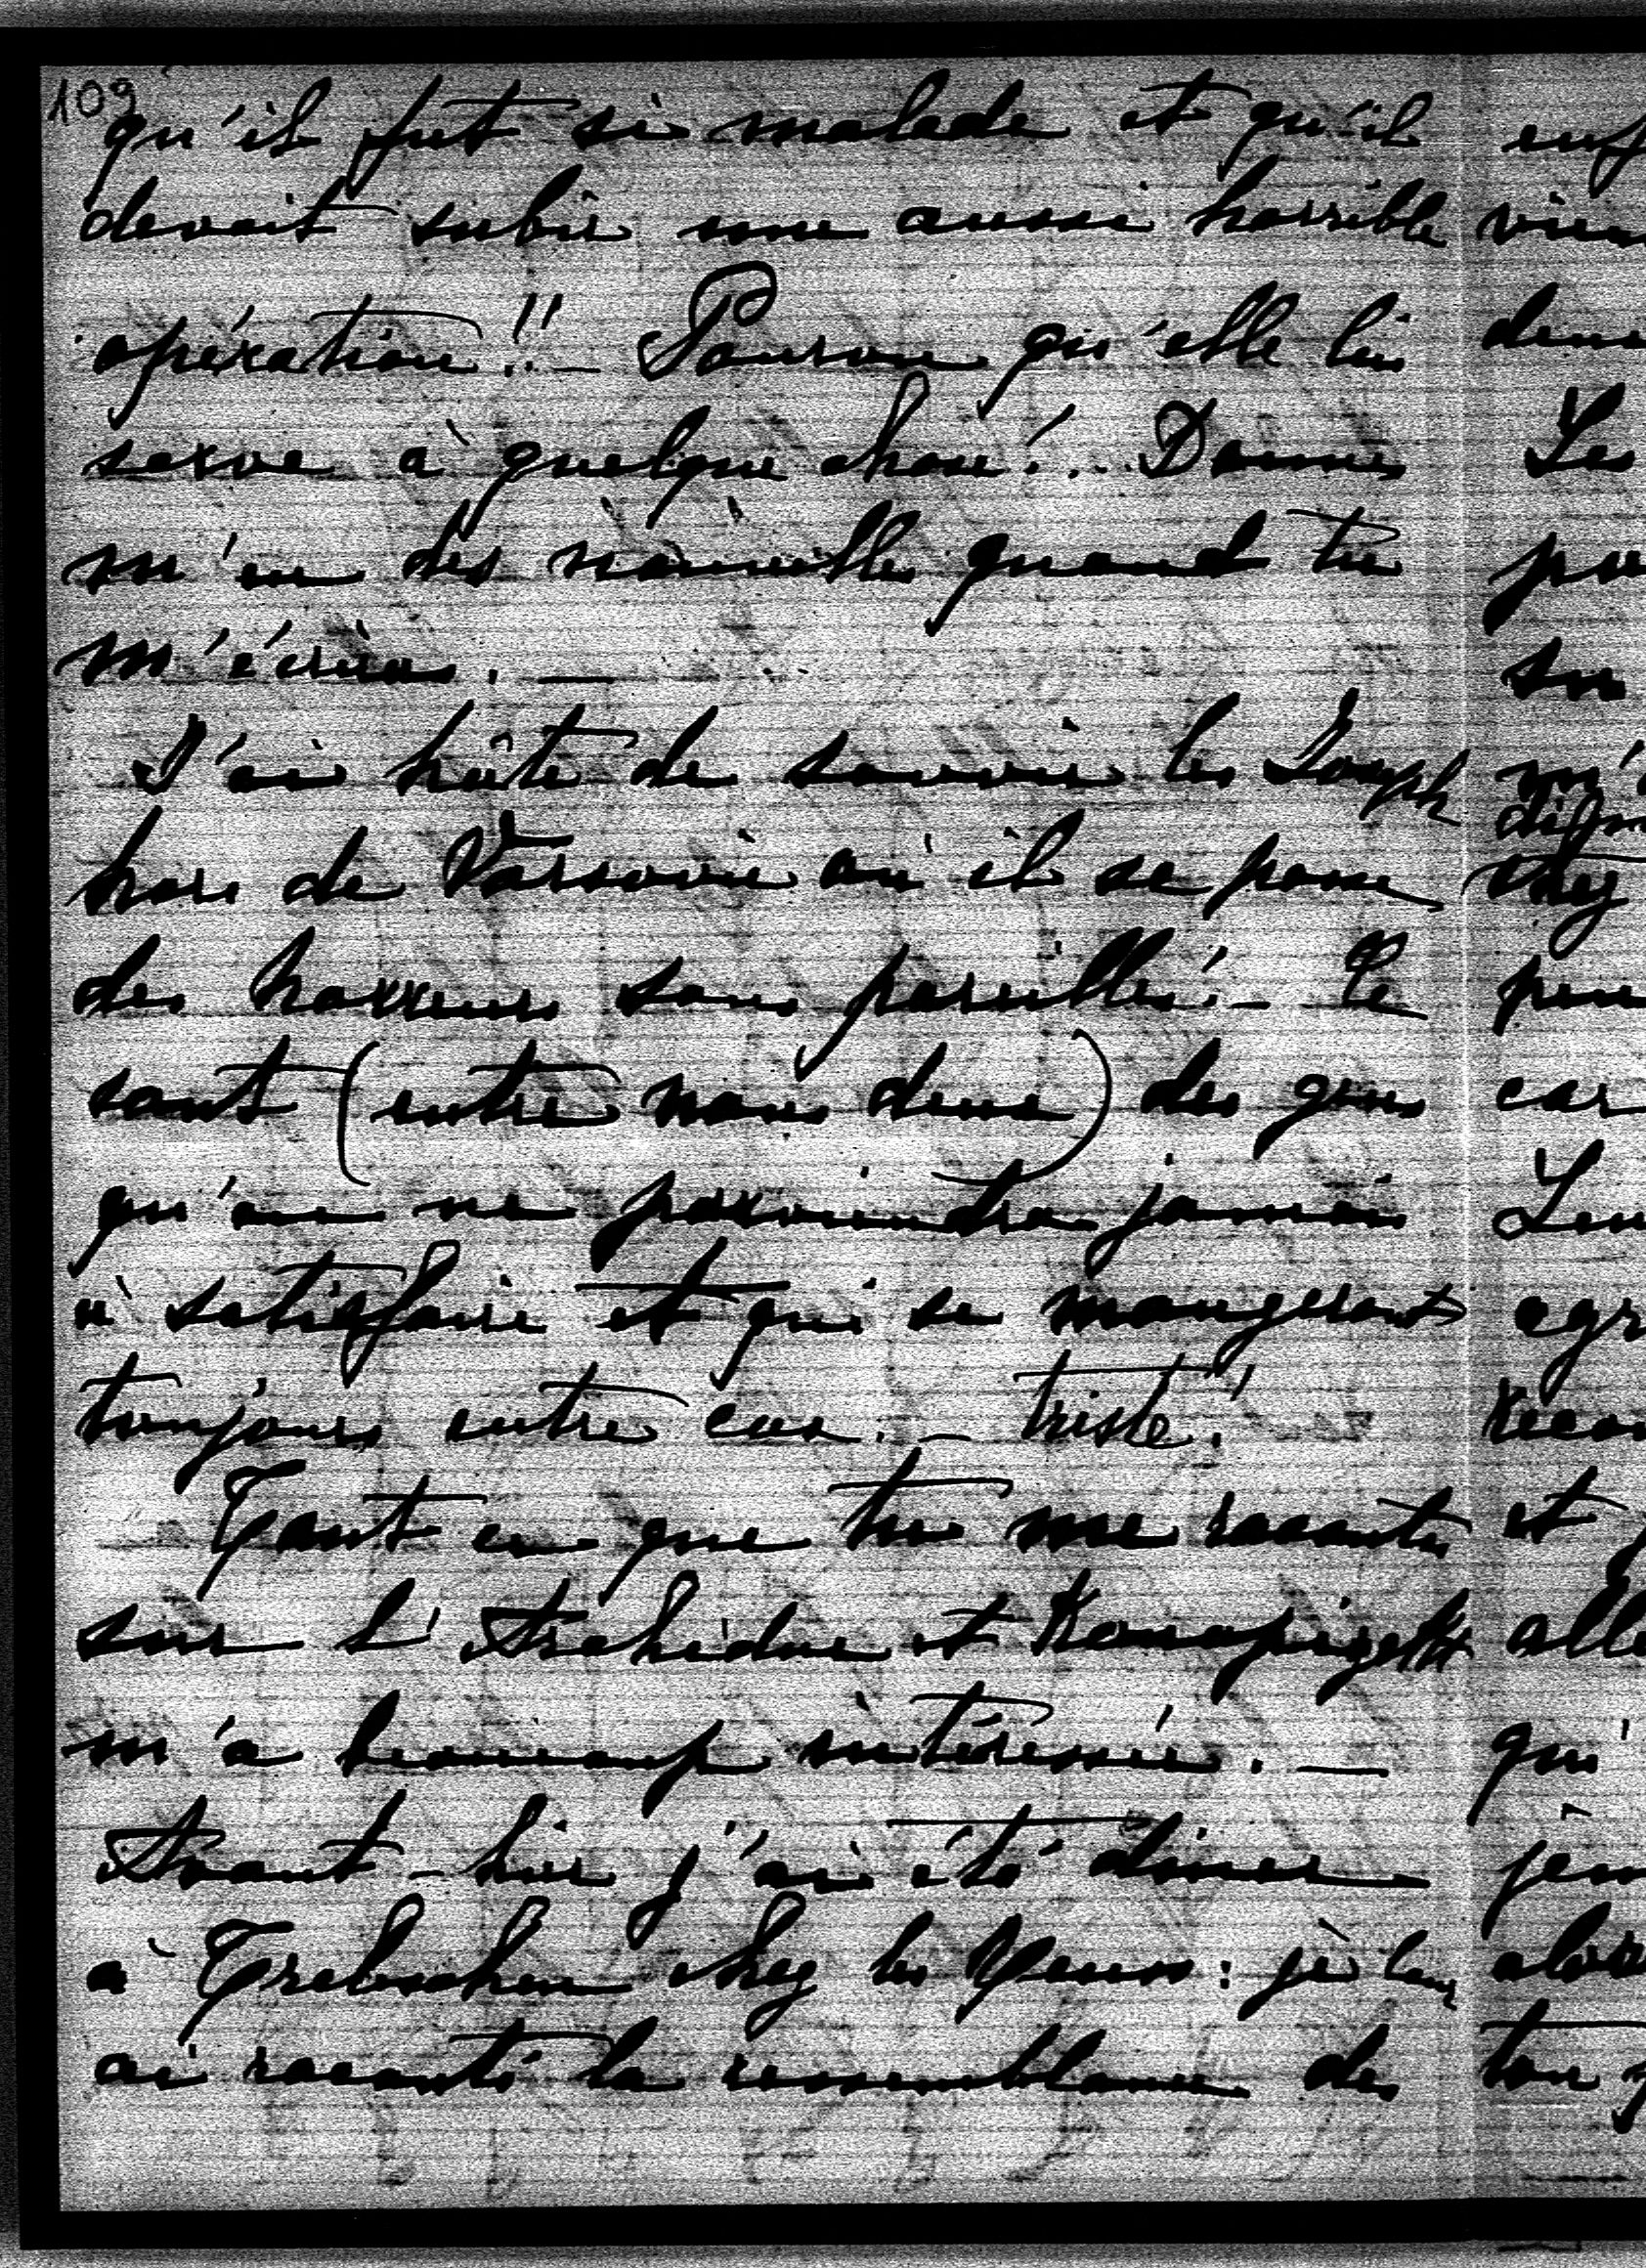 109
qu'il fut si malade et qu'il
devait subir une aussi horrible
opération!! — Pourvu qu'elle lui
serve à quelque chose!.. Donnes
m'en des nouvelles quand tu
m'écriras. —
J'ai hâte de savoir les Joseph
hors de Varsovie où il se passe
des horreurs sans pareilles! — Ce
sont (entre nous deux) des gens
qu'on ne parviendra jamais
à satisfaire et qui se mangeront
toujours entre eux. — triste!
Tant ce que tu me racontes
sur l'Archiduc et Konopischt
m'a beaucoup intéressée. —
Avant-hier j'ai été dîner
à Trebschen chez les Reuss: je leur
ai raconté la ressemblance des
Les
m'
chez
car
et
qu'